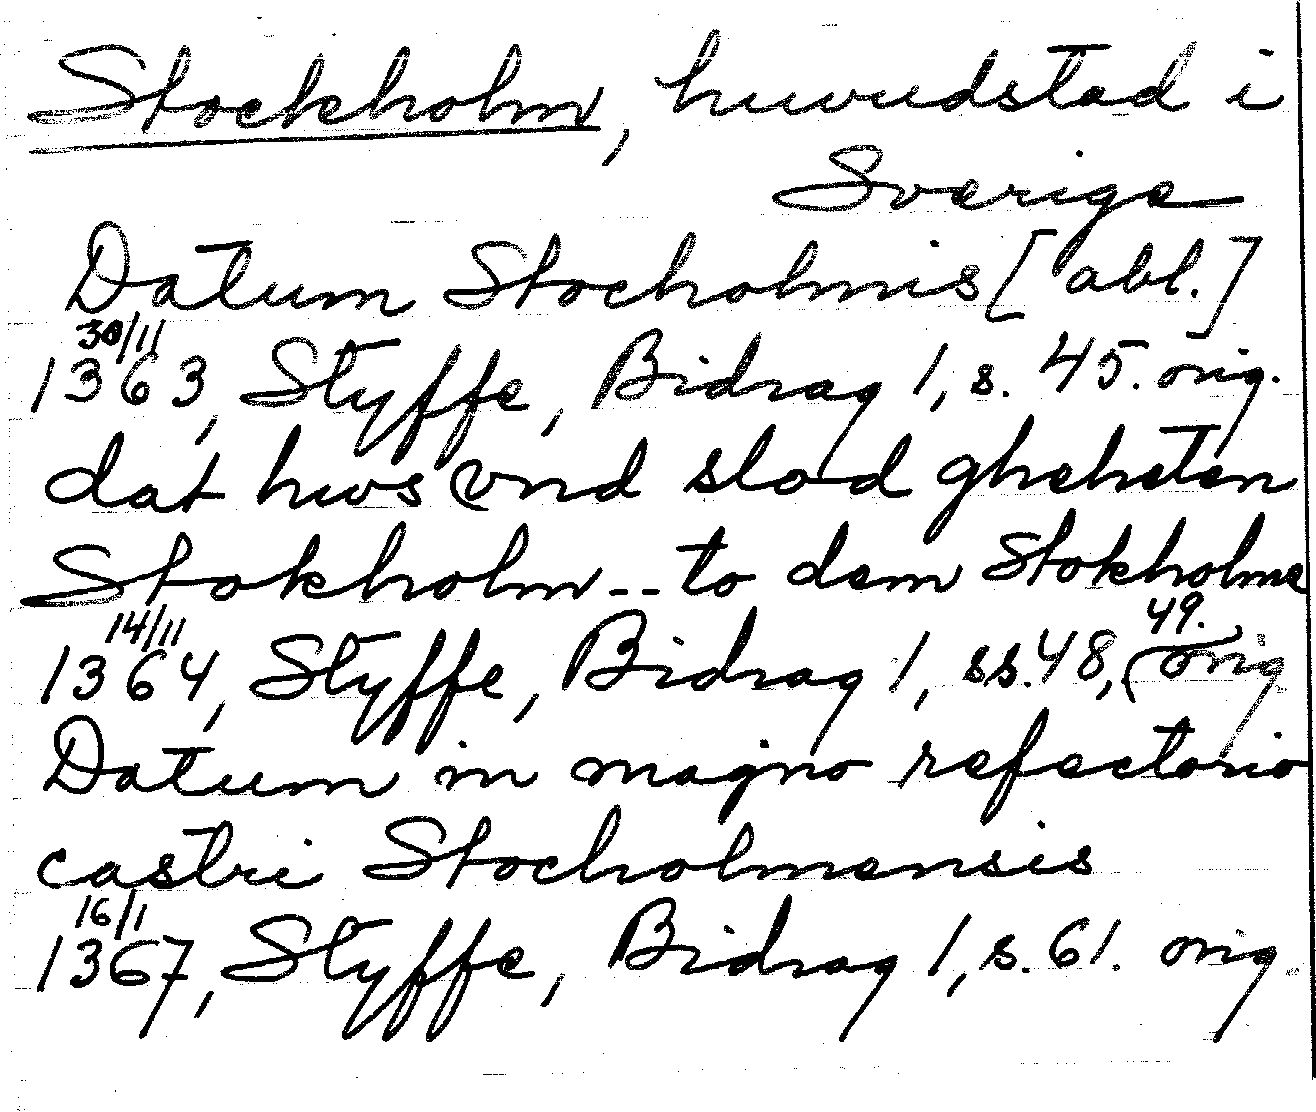 Stockholm, huvudstad i
Sverige
Datum Stocholmis [abl.]
30/11
1363, Styffe, Bidrag 1, s. 45. orig.
dat hws vnd slod gheheten
Stokholm -- to dem Stokholme
14/11
1364, Styffe, Bidrag 1, ss. 48, 49. orig
Datum in magno refectorio
castri Stocholmensis
16/1
1367, Styffe, Bidrag 1, s. 61. orig.